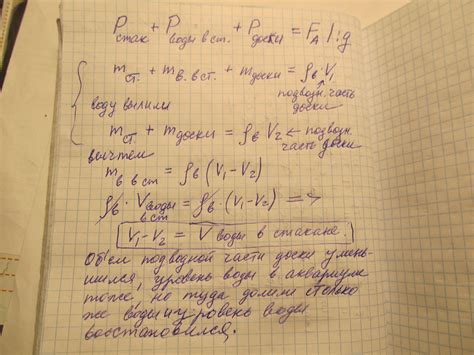 Pстак + Pводы в ст. + Pдоски = FА |:g
mст. + mв. в ст. + mдоски = ρв·V1
↑
подводн. часть
доски
воду вылили
mст. + mдоски = ρв V2 ← подводн.
часть доски
вычтем
mв в ст = ρв (V1-V2)
ρв· Vводы в ст = ρв·(V1-V2) =>
V1-V2 = Vводы в стакане.
Объем подводной части доски умень-
шился, уровень воды в аквариуме
тоже, но туда долили столько
же воды и уровень воды
восстановился.